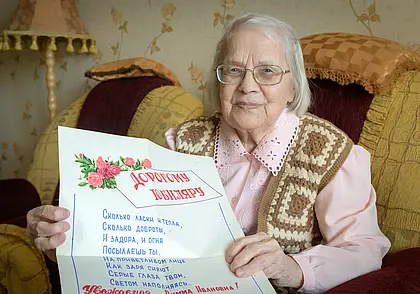 ДОРОГОМУ
ЮБИЛЯРУ
СКОЛЬКО ЛАСКИ И ТЕПЛА,
СКОЛЬКО ДОБРОТЫ,
И ЗАДОРА, И ОГНЯ
ПОСЫЛАЕШЬ ТЫ.
НА ПРИВЕТЛИВОМ ЛИЦЕ
КАК ЗАРЯ СИЯЮТ
СЕРЫЕ ГЛАЗА ТВОИ,
СВЕТОМ НАПОЛНЯЯСЬ.
УВАЖАЕМАЯ ИВАНОВНА!